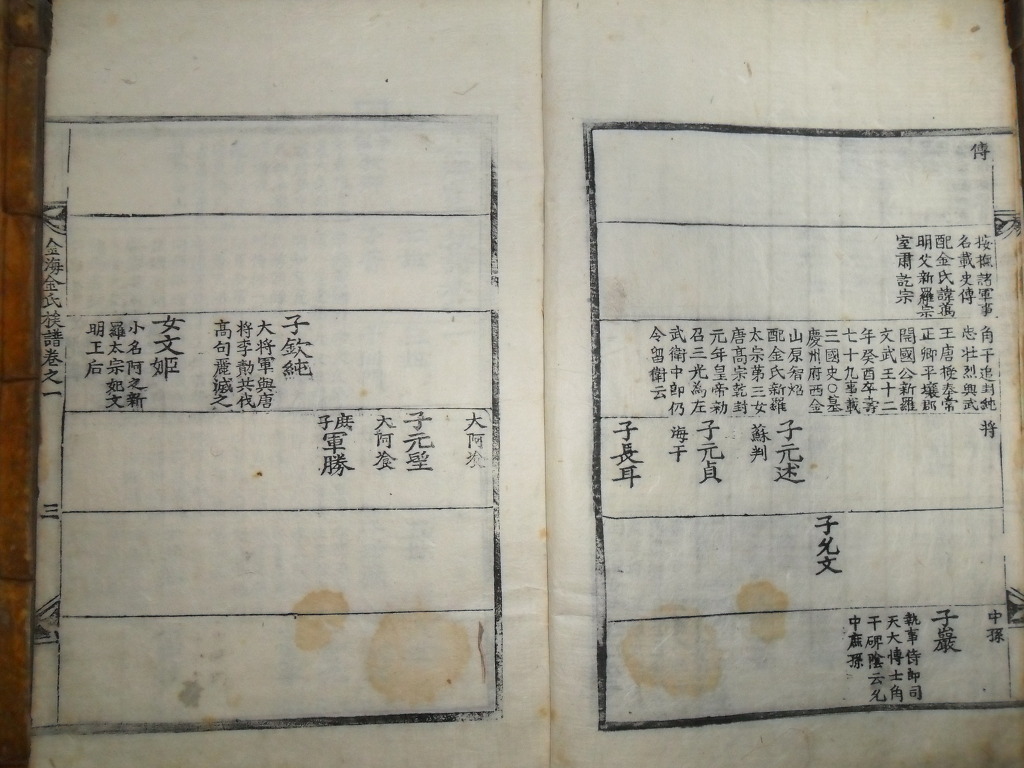 傳
按撫諸軍事
名載史傳
配金氏諱萬
明父新羅宗
室肅訖宗
角干追封純
忠壮烈興武
王唐授奉常
正卿平壤郡
開國公新羅
文武王十二
年癸酉卒壽
七十九事載
三國史○墓
慶州府西金
山原智炤
配金氏新羅
太宗第三女
唐高宗乾封
元年皇帝勑
召三光為左
武衛中郎仍
令留衛云
将
子元述
蘇判
子元貞
海干
子長耳
子允文
中孫
子巖
執事侍郎司
天大博士角
干碑陰云允
中庶孫
大阿飡
子元聖
大阿飡
庶子軍勝
子欽純
大将軍與唐
将李勣共伐
高句麗滅之
女文姬
小名阿之新
羅太宗妃文
明王后
金海金氏族譜卷之一
三